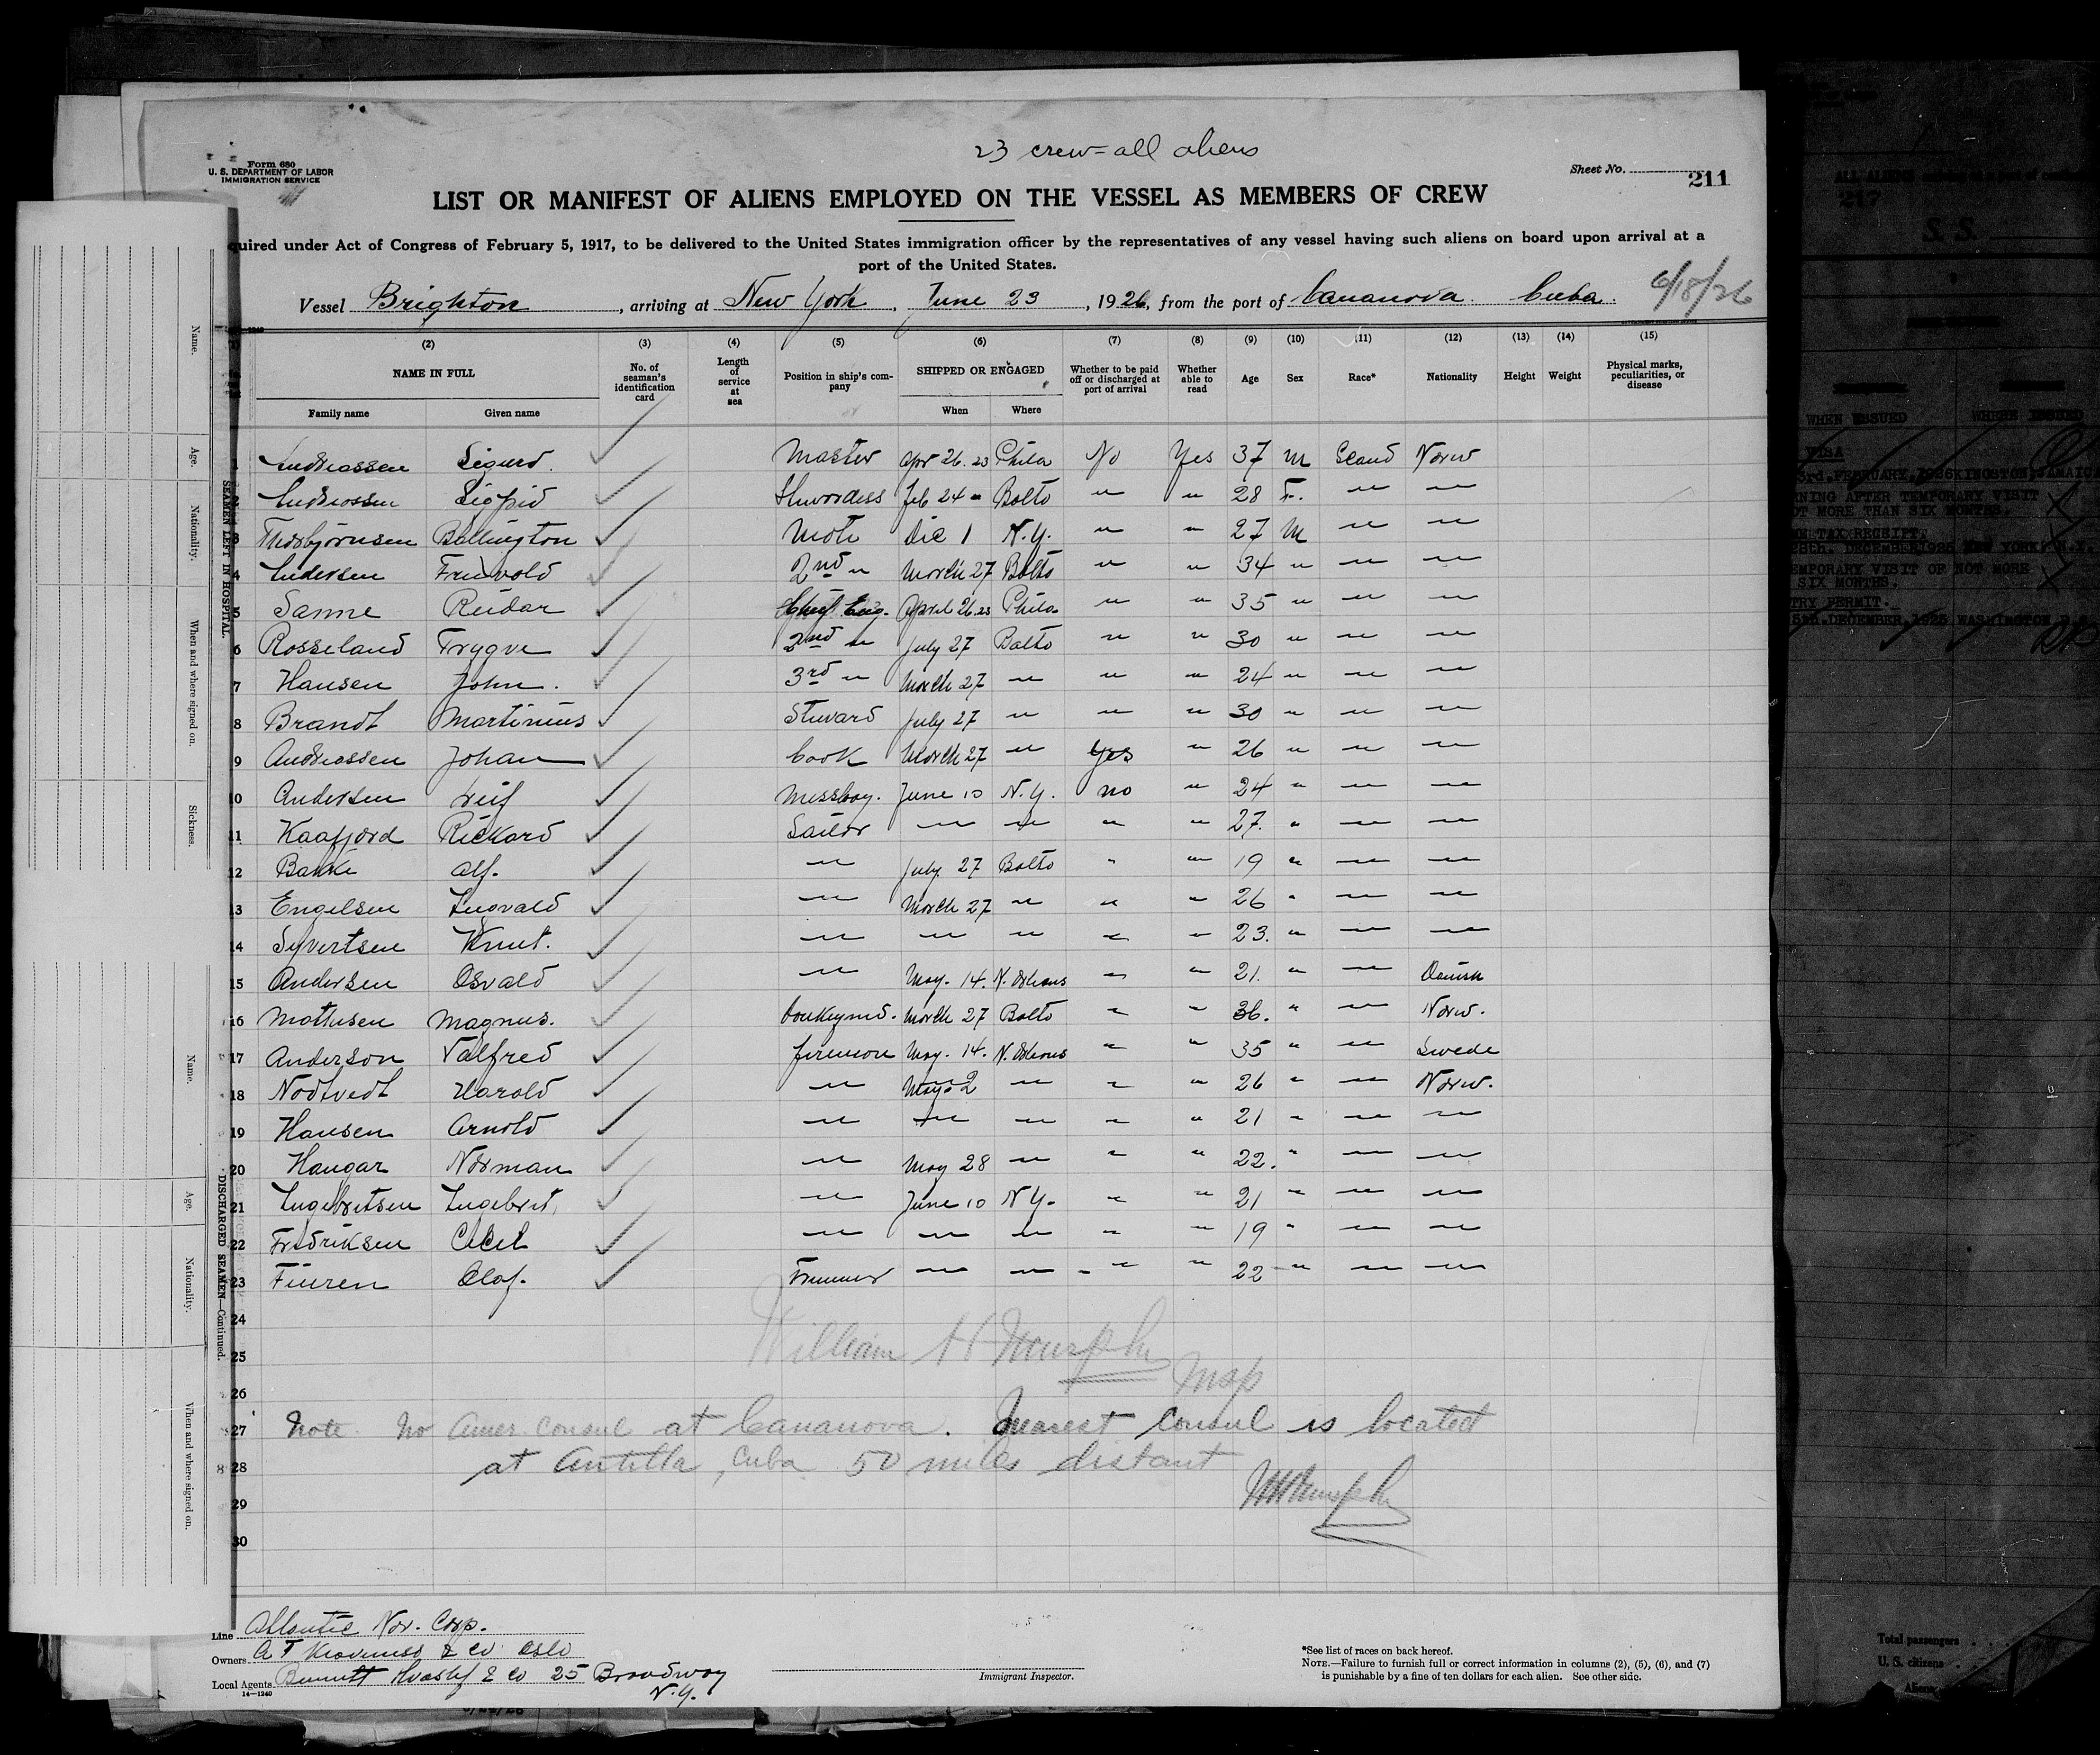 23 crew = all aliens
Form 680
U. S. DEPARTMENT OF LABOR
IMMIGRATION SERVICE
Sheet No.
211
LIST OR MANIFEST OF ALIENS EMPLOYED ON THE VESSEL AS MEMBERS OF CREW
quired under Act of Congress of February 5, 1917, to be delivered to the United States immigration officer by the representatives of any vessel having such aliens on board upon arrival at a
port of the United States.
Vessel Brighton, arriving at New York, June 23, 1926, from the port of Cananova. Cuba. 6/18/26
(2) (3) (4) (5) (6) (7) (8) (9) (10) (11) (12) (13) (14) (15)
NAME IN FULL No. of seaman's identification card Length of service at sea Position in ship's company SHIPPED OR ENGAGED Whether to be paid off or discharged at port of arrival Whether able to read Age Sex Race* Nationality Height Weight Physical marks, peculiarities, or disease
Family name Given name When Where
1 Andreassen Sigurd. Master Apr 26. 23 Phila No Yes 37 M Scand Norw
2 Andreassen Feb 24 " Balto " " 28 F. " "
3 Thorbjörnsen Dec 1 N.Y. " " 27 M " "
4 Andersen 2nd " March 27 Balto " " 34 " " "
5 Sanne Reidar Chief Eng. April 26. 23 Phila " " 35 " " "
6 Rosseland Trygve 2nd " July 27 Balto " " 30 " " "
7 Hansen John. 3rd " March 27 " " " 24 " " "
8 Brandt Martinius Stuvard July 27 " " " 30 " " "
9 Andreassen Johan Cook March 27 " Yes " 26 " " "
10 Andersen Leif Messboy. June 10 N.Y. no " 24 " " "
11 Kaafjord Rickard Sailor " " " " 27. " " "
12 Bakke Alf. " July 27 Balto " " 19 " " "
13 Engelsen Ingvald " March 27 " " " 26 " " "
14 Syvertsen Knut. " " " " " 23. " " "
15 Andersen Osvald " May. 14. N. Orleans " " 21. " " Danish
16 Magnus. March 27 Balto " " 36. " " Norw.
17 Anderson Valfred fireman May. 14. N. Orleans " " 35 " " Swede
18 Nodtvedt Harald " May 2 " " " 26 " " Norw.
19 Hansen Arnold " " " " " 21 " " "
20 Haugar Norman " May 28 " " " 22. " " "
21 Ingebretsen Ingebret. " June 10 N.Y. " " 21 " " "
22 Fredriksen " " " " " 19 " " "
23 Olaf. " " " " 22 " " "
24
William H Murphy
25
Map
26
27 Note. No Amer. Consul at Cananova. Nearest Consul is located
28 at Antilla, Cuba 50 miles distant
WHMurphy
29
30
Line Atlantic Nav. Corp.
Owners & Co Oslo
Local Agents Bennett Hvoslef & Co 25 Broadway
N.Y.
14—1240
Immigrant Inspector.
*See list of races on back hereof.
NOTE.—Failure to furnish full or correct information in columns (2), (5), (6), and (7)
is punishable by a fine of ten dollars for each alien. See other side.
Name.
Age.
Nationality.
When and where signed on.
Sickness.
SEAMEN LEFT IN HOSPITAL.
Name.
Age.
Nationality.
When and where signed on.
DISCHARGED SEAMEN—Continued.
217
S. S.
WHEN ISSUED WHERE ISSUED
VISA
3rd. FEBRUARY, 1926 KINGSTON, JAMAIC
NING AFTER TEMPORARY VISIT
OT MORE THAN SIX MONTHS.
TAX RECEIPT.
28th. DECEMBER 1925 NEW YORK, N.Y.
EMPORARY VISIT OF NOT MORE
SIX MONTHS.
TRY PERMIT.
5th. DECEMBER, 1925 WASHINGTON D.C.
Total passengers
U. S. citizens
Aliens